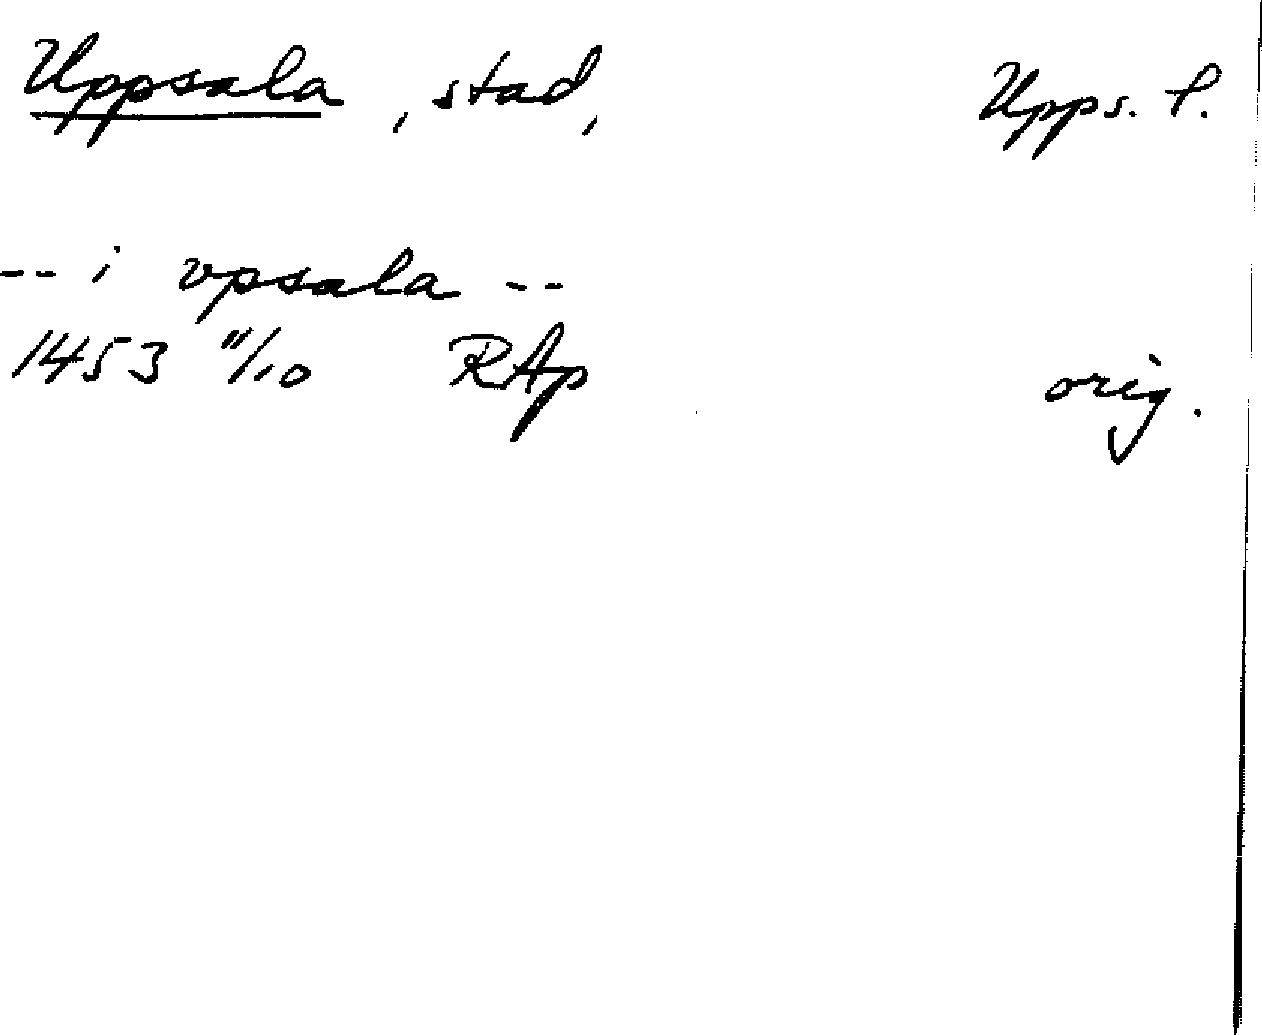 Uppsala, stad, Upps. l.
-- i vpsala --
1453 11/10 RAp orig.